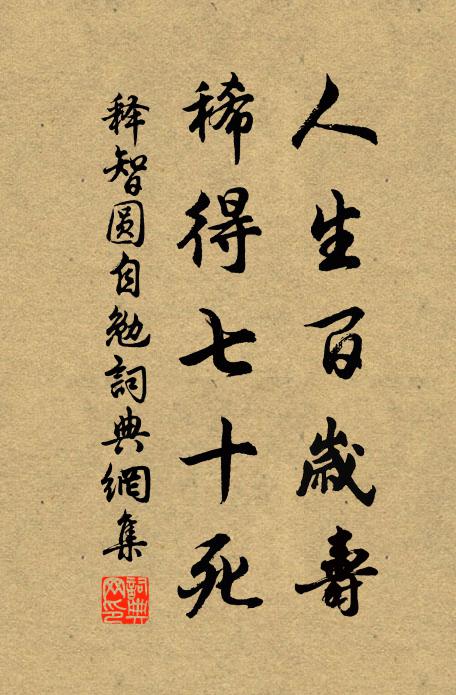 人生百歲壽
稀得七十死
释智圓自勉詞典網集
詞典网印